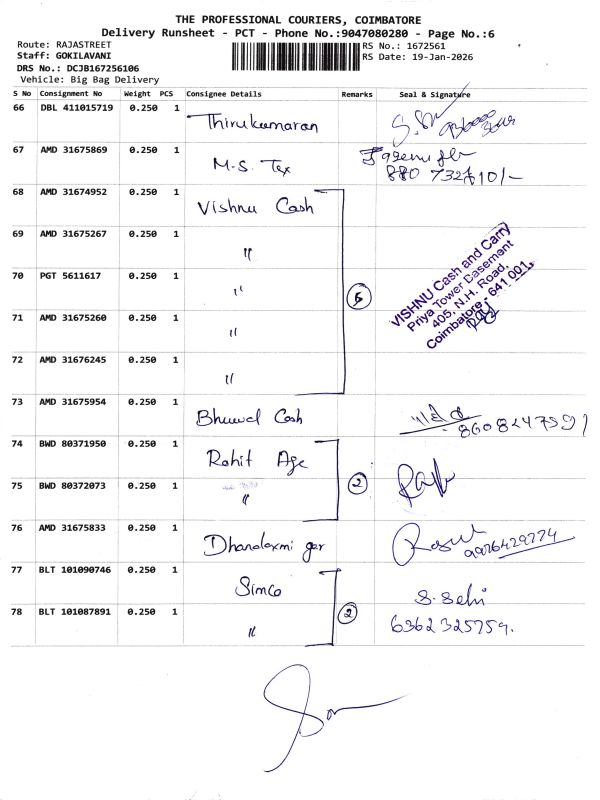 THE PROFESSIONAL COURIERS, COIMBATORE
Delivery Runsheet - PCT - Phone No.:9047080280 - Page No.:6
Route: RAJASTREET
Staff: GOKILAVANI
DRS No.: DCJB167256106
Vehicle: Big Bag Delivery
RS No.: 1672561
RS Date: 19-Jan-2026
S No Consignment No Weight PCS Consignee Details Remarks Seal & Signature
66 DBL 411015719 0.250 1 Thirukumaran
67 AMD 31675869 0.250 1 M.S. Tex
68 AMD 31674952 0.250 1 Vishnu Cash
69 AMD 31675267 0.250 1 "
70 PGT 5611617 0.250 1 "
71 AMD 31675260 0.250 1 "
72 AMD 31676245 0.250 1 "
5
VISHNU Cash and Carry
Priya Tower Basement
405, N.H. Road,
Coimbatore - 641 001.
73 AMD 31675954 0.250 1 Cash
74 BWD 80371950 0.250 1 Rohit Age
75 BWD 80372073 0.250 1 "
2
76 AMD 31675833 0.250 1 Dhanalaxmi
77 BLT 101090746 0.250 1 Simco
78 BLT 101087891 0.250 1 "
2
6362325759.